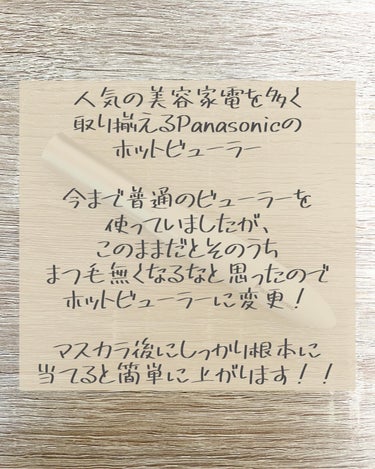 人気の美容家電を多く
取り揃えるPanasonicの
ホットビューラー
今まで普通のビューラーを
使っていましたが、
このままだとそのうち
まつ毛無くなるなと思ったので
ホットビューラーに変更！
マスカラ後にしっかり根本に
当てると簡単に上がります！！